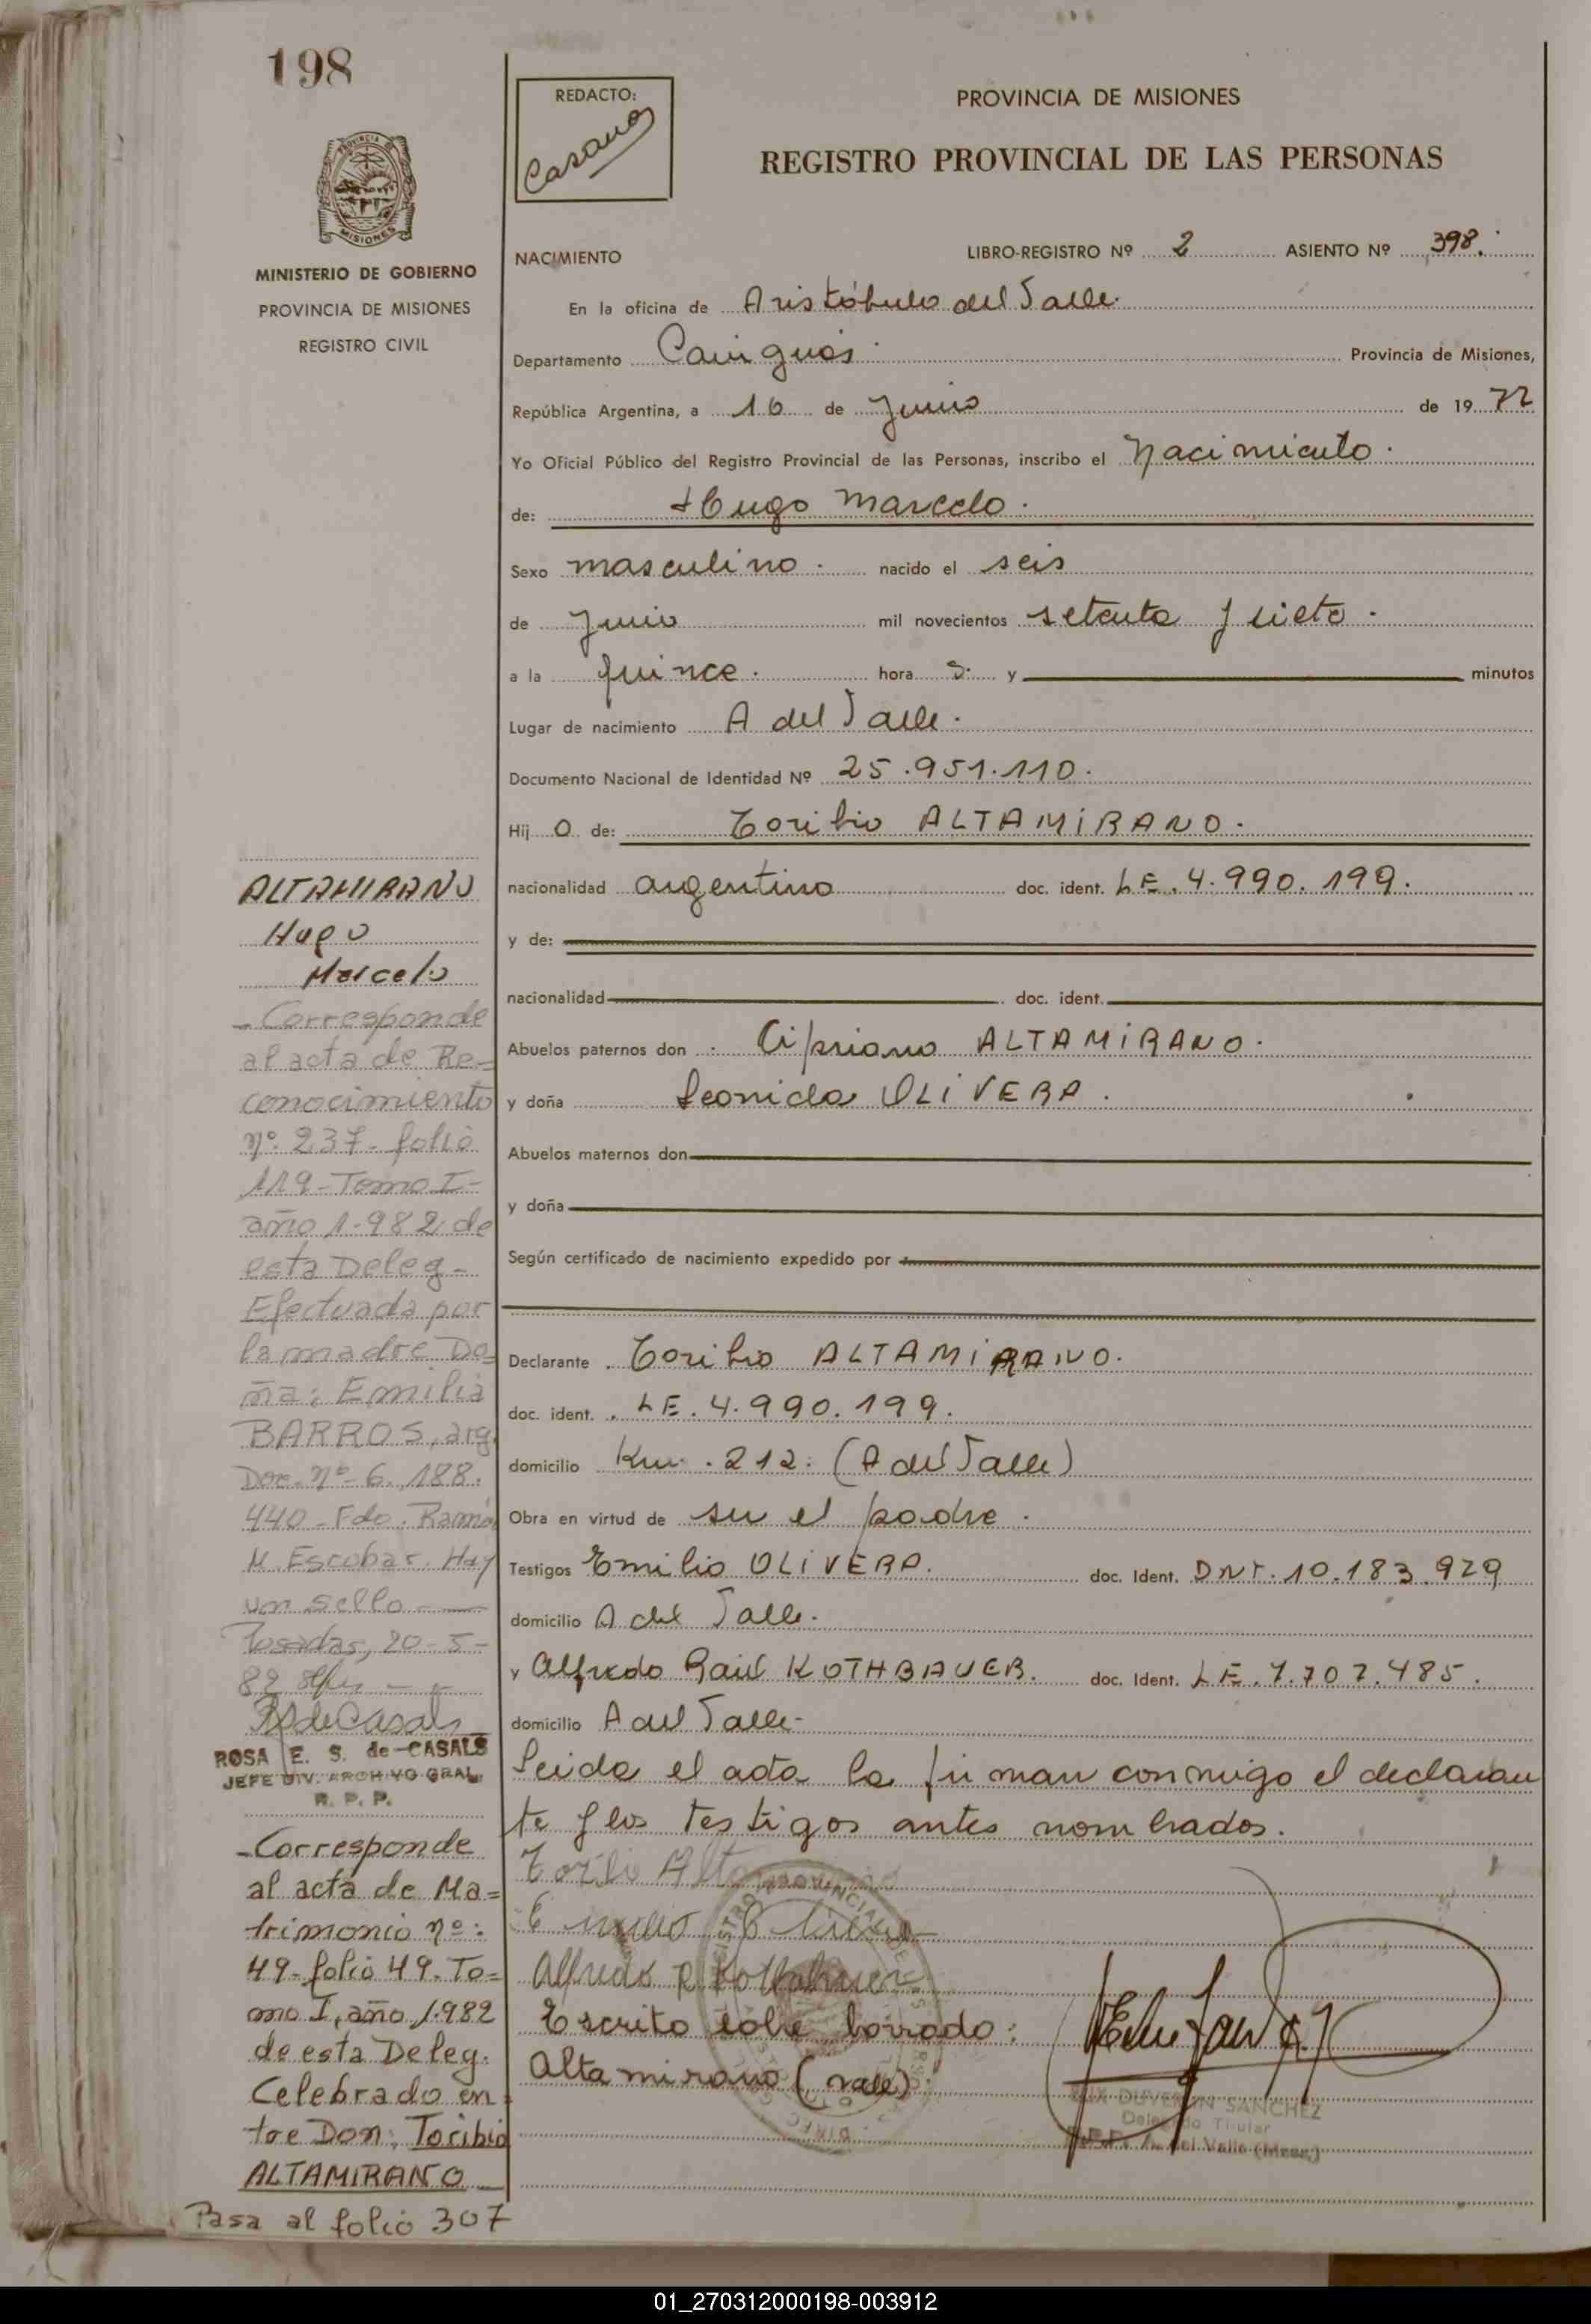 198
REDACTO:
Casana
PROVINCIA DE MISIONES
REGISTRO PROVINCIAL DE LAS PERSONAS
PROVINCIA DE
MISIONES
MINISTERIO DE GOBIERNO
PROVINCIA DE MISIONES
REGISTRO CIVIL
NACIMIENTO LIBRO-REGISTRO Nº 2 ASIENTO Nº 398.
En la oficina de Aristóbulo del Valle.
Departamento Cainguás. Provincia de Misiones,
República Argentina, a 16 de Junio de 1977
Yo Oficial Público del Registro Provincial de las Personas, inscribo el Nacimiento.
de: Hugo Marcelo.
Sexo masculino. nacido el seis
de Junio mil novecientos setenta y siete.
a la quince. hora s. y minutos
Lugar de nacimiento A del Valle.
Documento Nacional de Identidad Nº 25.951.110.
Hij o de: Toribio ALTAMIRANO.
nacionalidad argentino doc. ident. LE. 4.990.199.
y de:
nacionalidad doc. ident.
Abuelos paternos don Cipriano ALTAMIRANO.
y doña Leonida OLIVERA.
Abuelos maternos don
y doña
Según certificado de nacimiento expedido por
Declarante Toribio ALTAMIRANO.
doc. ident. LE. 4.990.199.
domicilio Km. 212. (A del Valle)
Obra en virtud de su el padre.
Testigos Emilio OLIVERA. doc. Ident. DNI. 10.183.929
domicilio A del Valle.
y Alfredo Raúl KOTHBAUER. doc. Ident. LE. 7.707.485.
domicilio A del Valle-
Leida el acta la firman conmigo el declaran
te y los testigos antes nombrados.
Alfredo R Kothbauer
Escrito sobre borrado:
Altamirano (vale).
SANCHEZ
Delegado Titular
A. del Valle (Mnes.)
ALTAMIRANO
Hugo
Marcelo
- Corresponde
al acta de Re-
conocimiento
nº. 237- folio
119-Tomo I-
año 1.982 de
esta Deleg-
Efectuada por
la madre Do=
ña: Emilia
BARROS, arg.
Doc. Nº 6.188.
440 - Fdo. Ramón
M. Escobar. Hay
un sello -
Posadas, 20-5-
82
RSdeCasals
ROSA E. S. de CASALS
JEFE DIV. ARCHIVO GRAL.
R. P. P.
- Corresponde
al acta de Ma=
trimonio nº:
49- folio 49. To=
mo I, año 1.982
de esta Deleg.
Celebrado en
tre Don: Toribio
ALTAMIRANO
Pasa al folio 307
01_270312000198-003912